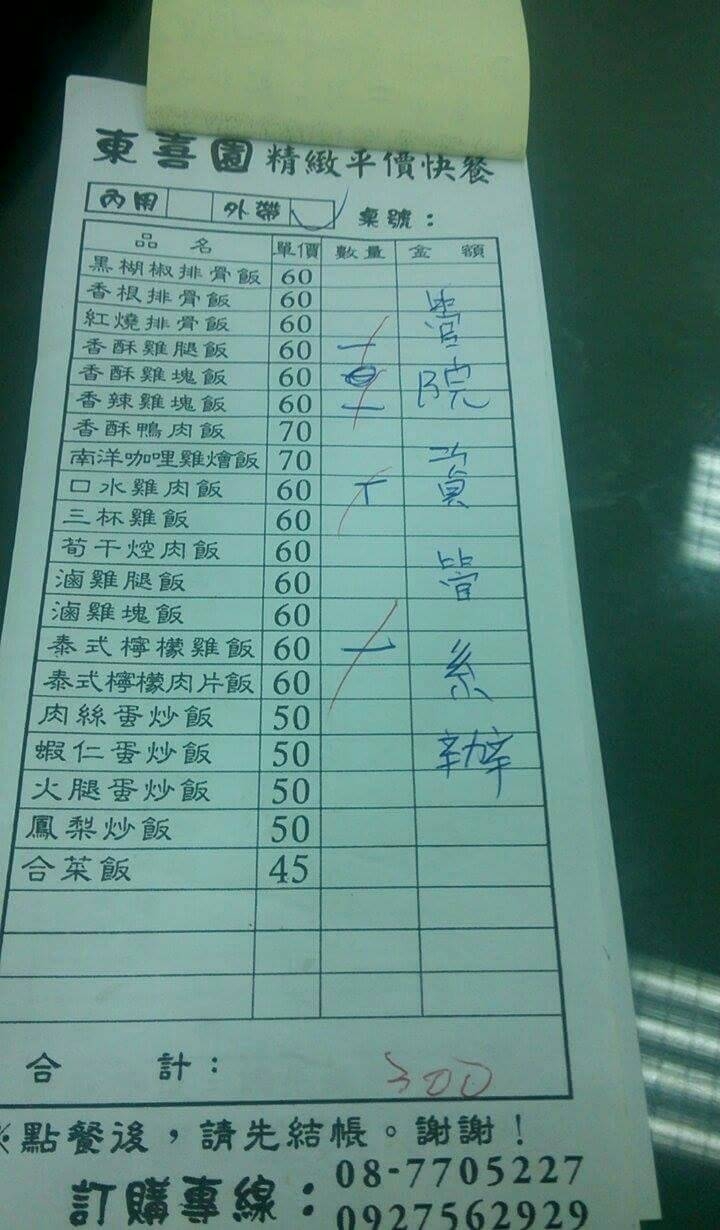 東喜園 精緻平價快餐
內用 外帶 桌號：
品名 單價 數量 金額
黑楜椒排骨飯 60
香根排骨飯 60
紅燒排骨飯 60
香酥雞腿飯 60 一
香酥雞塊飯 60
香辣雞塊飯 60 一
香酥鴨肉飯 70
南洋咖哩雞燴飯 70
口水雞肉飯 60 T
三杯雞飯 60
荀干焢肉飯 60
滷雞腿飯 60
滷雞塊飯 60
泰式檸檬雞飯 60 一
泰式檸檬肉片飯 60
肉絲蛋炒飯 50
蝦仁蛋炒飯 50
火腿蛋炒飯 50
鳳梨炒飯 50
合菜飯 45
院
管
系
辦
合計： 300
※點餐後，請先結帳。謝謝！
訂購專線：08-7705227
0927562929